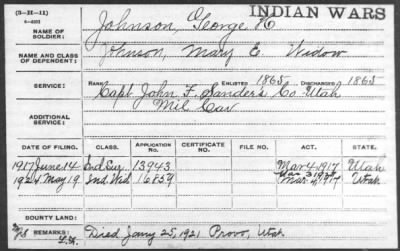 (3—H—11)
INDIAN WARS
NAME OF SOLDIER: Johnson, George H
NAME AND CLASS OF DEPENDENT: Johnson, Mary E. Widow
SERVICE: RANK Capt. John F. Sanders Co Utah Mil Cav ENLISTED 1865 DISCHARGED 1865
ADDITIONAL SERVICE:
DATE OF FILING. CLASS. APPLICATION NO. CERTIFICATE NO. FILE NO. ACT. STATE.
1917 June 14 Ind Sur. 13943 Mar 4, 1917 Utah
1921 May 19 Ind Wid 16859 Mar 4, 1917 Utah
BOUNTY LAND:
REMARKS: Died Jany 25, 1921 Provo, Utah